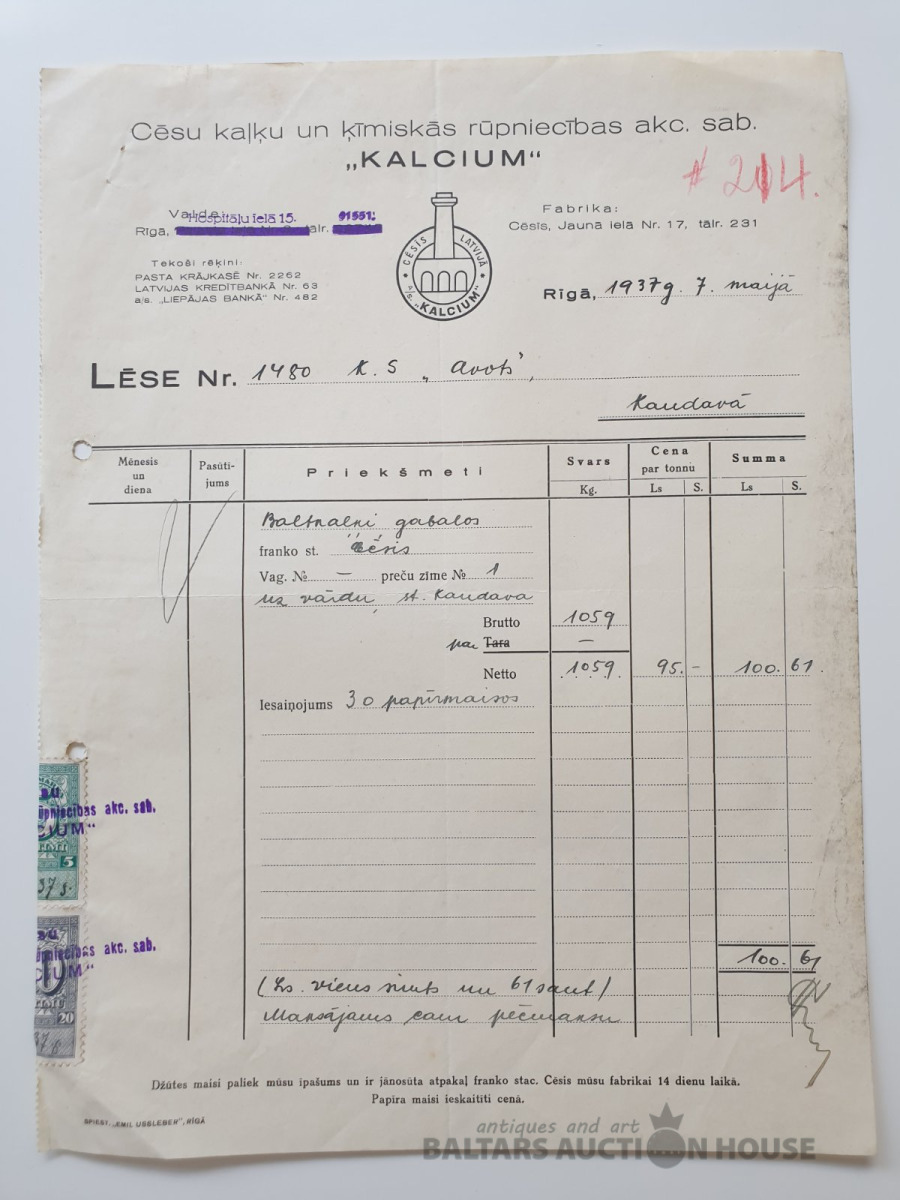 Cēsu kaļķu un ķīmiskās rūpniecības akc. sab.
„KALCIUM“
# 214.
Valde:
Hospitāļu ielā 15. 91551.
Rīgā, tālr.
Fabrika:
Cēsis, Jaunā ielā Nr. 17, tālr. 231
Tekoši rēķini:
PASTA KRĀJKASĒ Nr. 2262
LATVIJAS KREDĪTBANKĀ Nr. 63
a/s. „LIEPĀJAS BANKĀ“ Nr. 482
CĒSĪS LATVIJĀ
A/S „KALCIUM“
Rīgā, 1937g. 7. maijā
LĒSE Nr. 1480 K. S „Avots“,
Kandavā
Mēnesis un diena
Pasūti-jums
Priekšmeti
Svars
Kg.
Cena par tonnu
Ls S.
Summa
Ls S.
gabalos
franko st. Cēsis
Vag. № — preču zīme № 1
uz vārdu, st. Kandava
Brutto 1059
par Tara —
Netto 1059. 95. - 100. 61.
Iesaiņojums 30 papīrmaisos
100. 61
(Ls. viens simts un 61 sant/
Maksājams
rūpniecības akc. sab.
CIUM“
5
37 g.
rūpniecības akc. sab.
CIUM“
20
37 g
Džūtes maisi paliek mūsu īpašums un ir jānosūta atpakaļ franko stac. Cēsis mūsu fabrikai 14 dienu laikā.
Papīra maisi ieskaitīti cenā.
SPIEST. „EMIL USSLEBER“, RĪGĀ
antiques and art
BALTARS AUCTION HOUSE